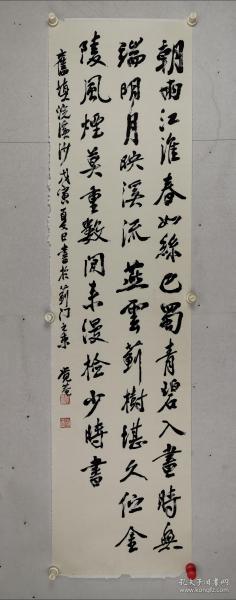 朝雨江淮春如絲巴蜀青碧入畫時無
端明月映溪流燕雲薊樹堪久伫金
陵風煙莫重數閑来漫檢少時書
舊填浣溪沙戊寅夏日書於薊门之東
孔夫子旧书网